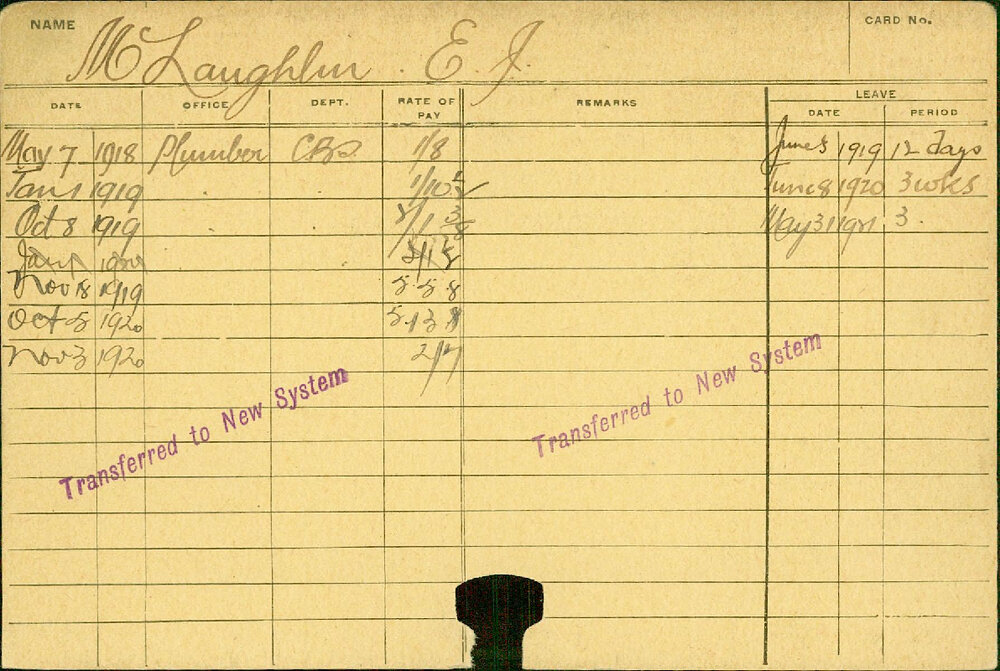 NAME McLaughlin. E. J. CARD No.
DATE OFFICE DEPT. RATE OF PAY REMARKS LEAVE
DATE PERIOD
May 7 1918 Plumber 1/8 June 5 1919 12 days
Jan 1 1919 June 8 1920 3 wks
Oct 8 1919 May 31 1921 3.
Jan 1 1920
Nov 18 1919 5 5 8
Oct 5 1920 5 13 8
Nov 3 1920
Transferred to New System
Transferred to New System